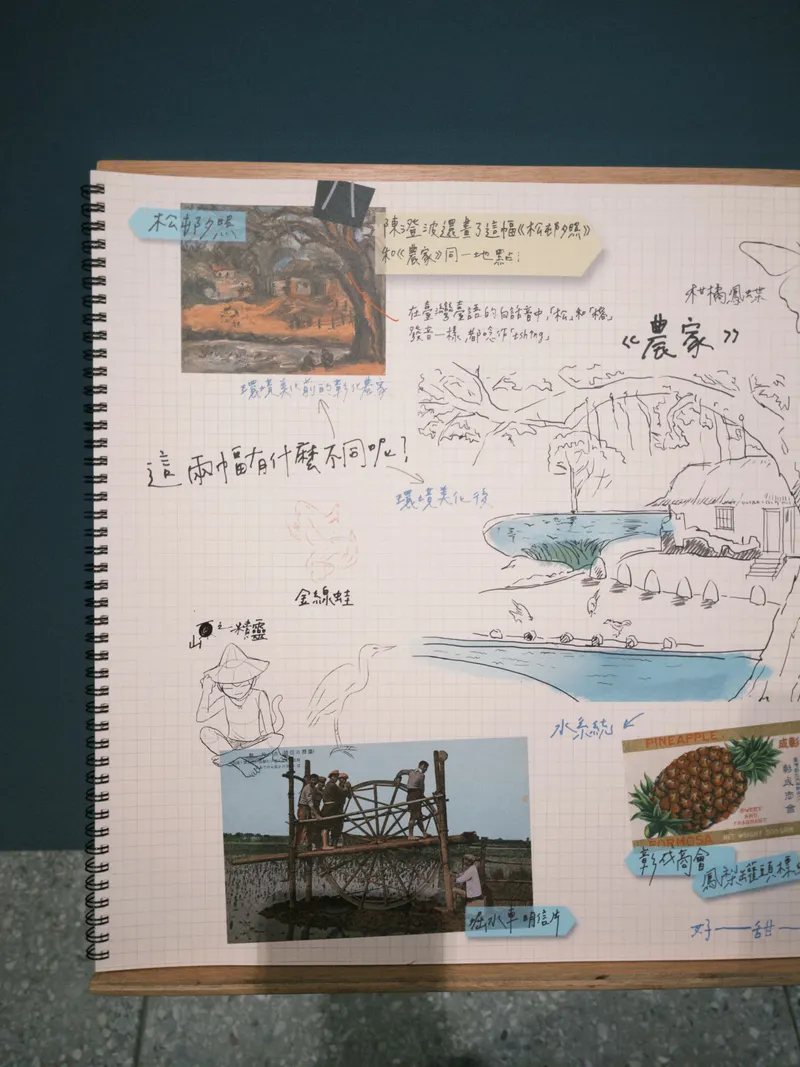 松邨夕照
陳澄波還畫了這幅《松邨夕照》
和《農家》同一地點!
在臺灣臺語的白話音中,「松」和「榕」
發音一樣,都唸作「tshîng」
柑橘鳳蝶
《農家》
環境美化前的彰化農家
這兩幅有什麼不同呢?
環境美化後
金線蛙
山
之精靈
水系統
PINEAPPLE
SWEET
AND
FRAGRANT
FORMOSA
彰成商會
鳳梨罐頭標
掘水車明信片
好——甜—